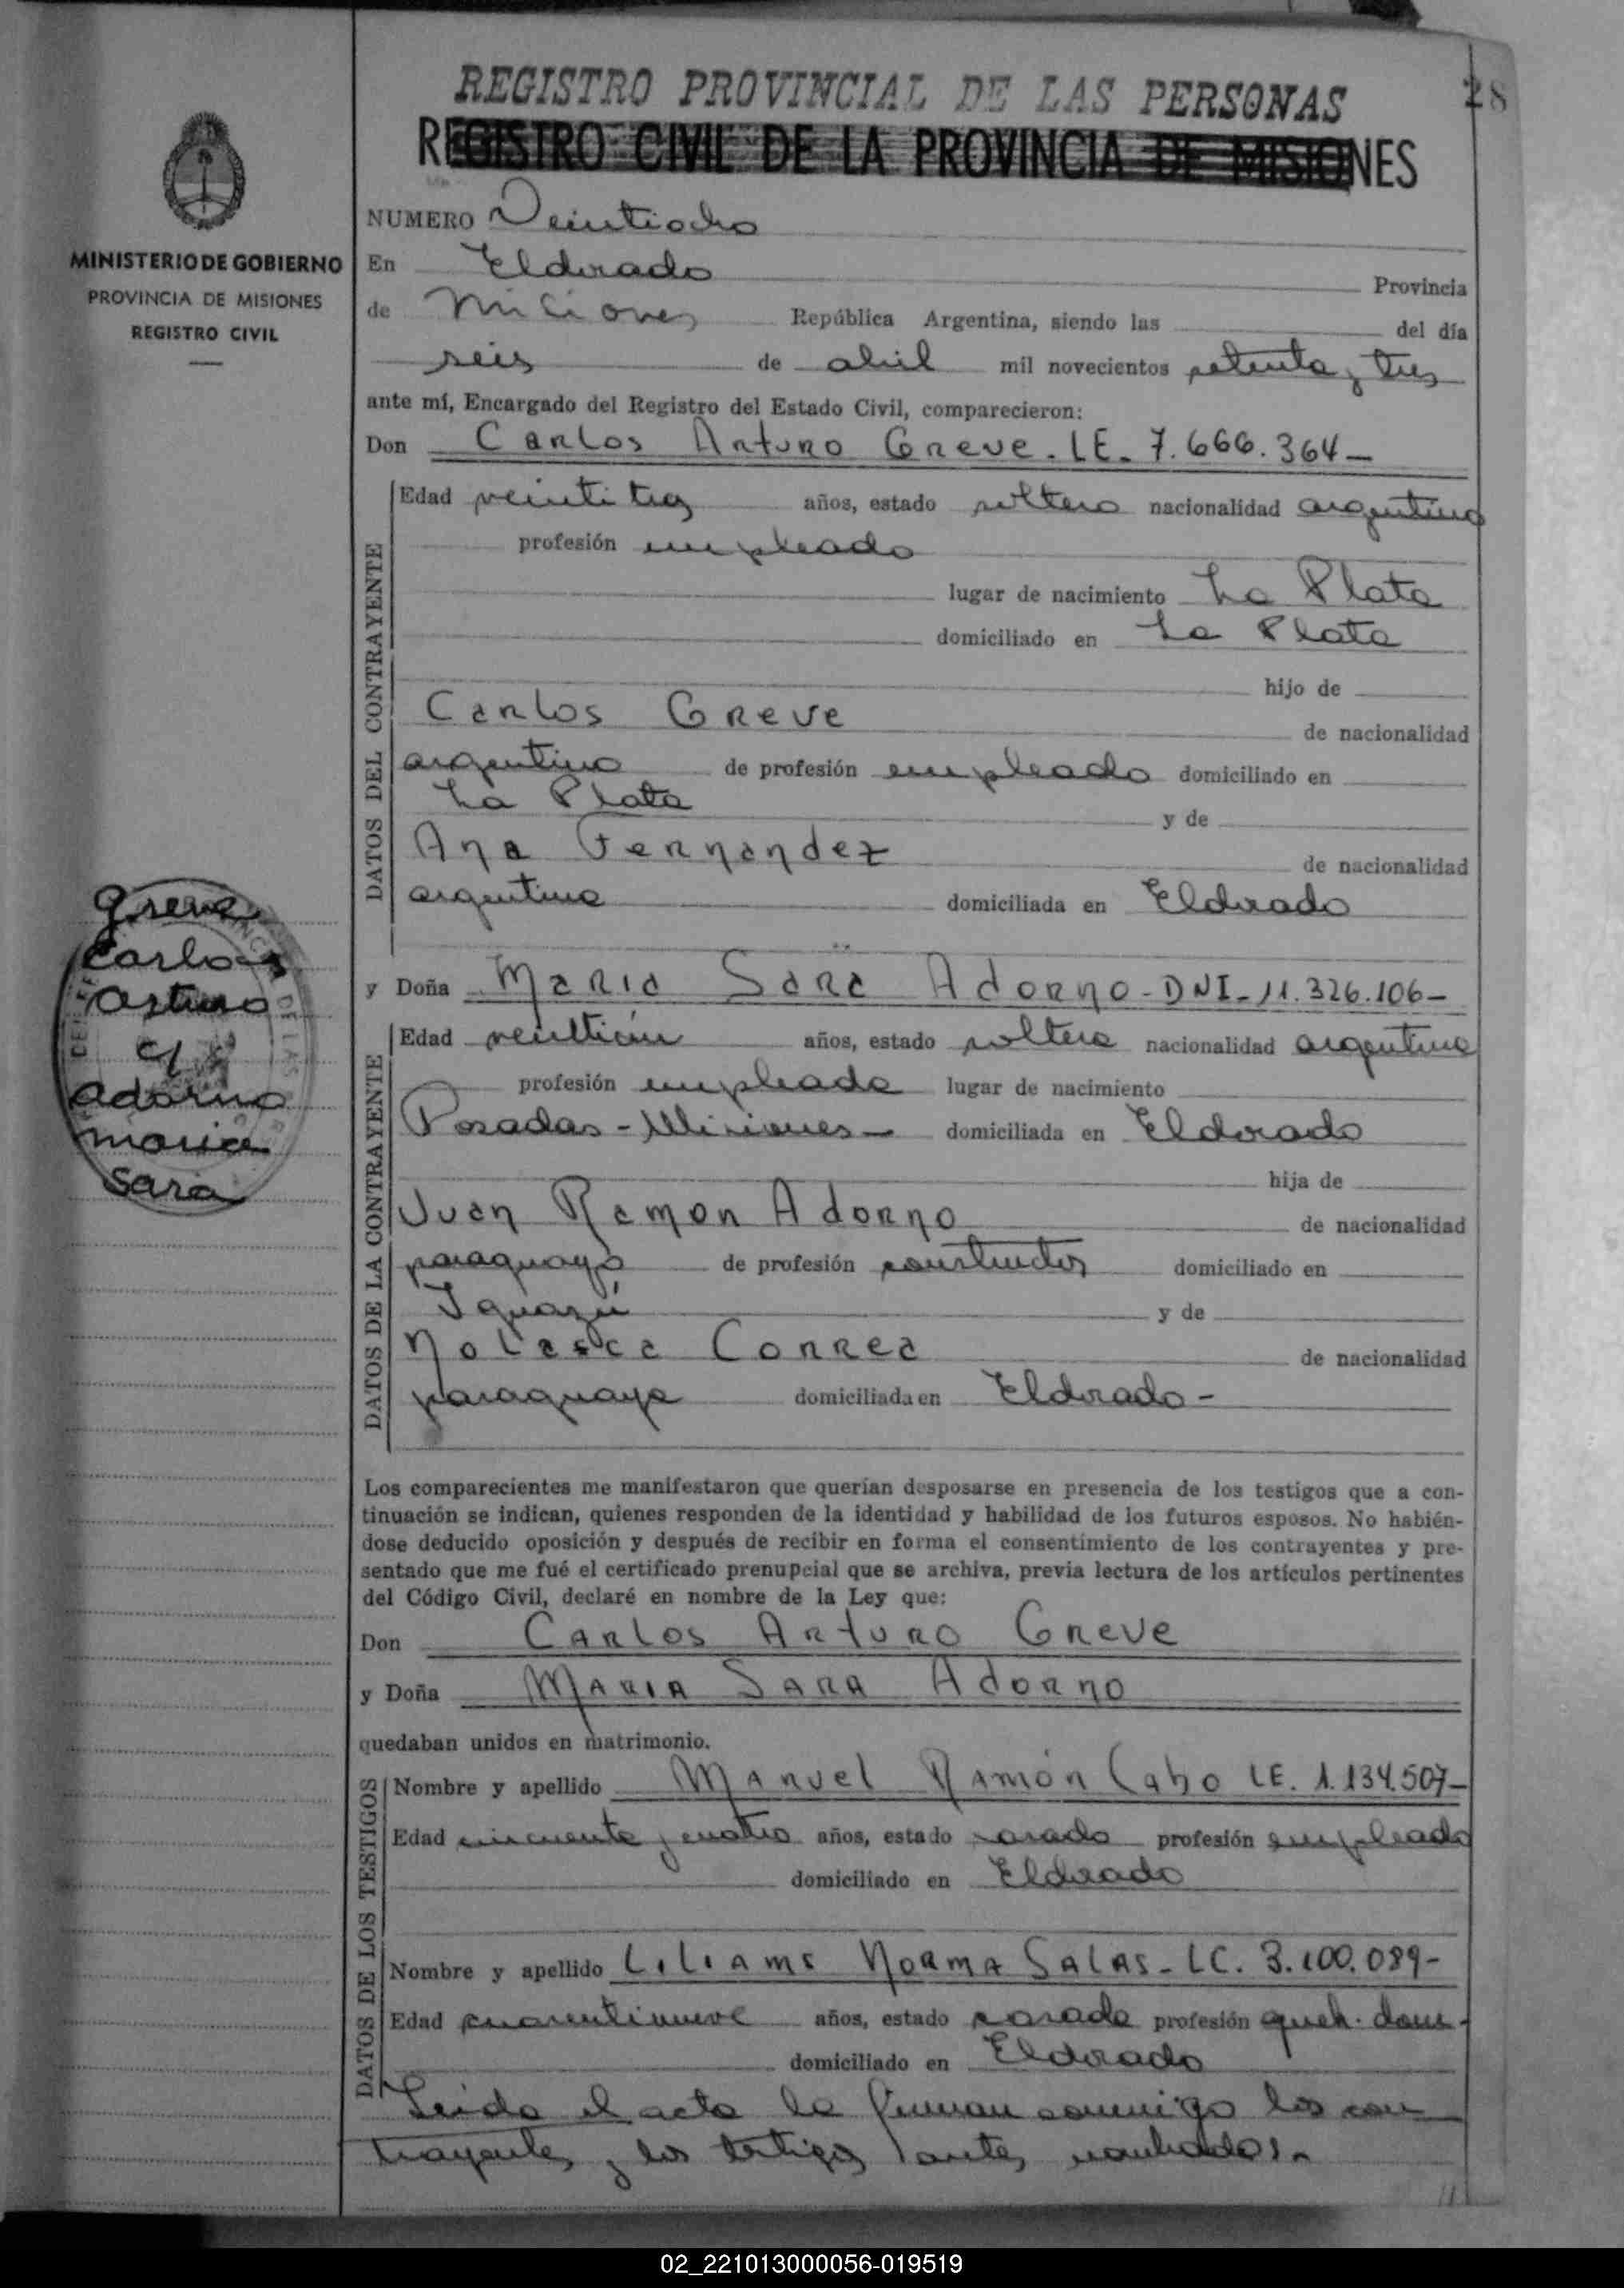 REGISTRO PROVINCIAL DE LAS PERSONAS
28
REGISTRO CIVIL DE LA PROVINCIA DE MISIONES
MINISTERIO DE GOBIERNO
PROVINCIA DE MISIONES
REGISTRO CIVIL
NUMERO Veintiocho
En Eldorado Provincia
de Misiones República Argentina, siendo las del día
seis de abril mil novecientos setenta y tres
ante mí, Encargado del Registro del Estado Civil, comparecieron:
Don Carlos Arturo Greve. LE. 7.666.364-
DATOS DEL CONTRAYENTE
Edad veintitres años, estado soltero nacionalidad argentino
profesión empleado
lugar de nacimiento La Plata
domiciliado en La Plata
hijo de
Carlos Greve
de nacionalidad
argentino de profesión empleado domiciliado en
La Plata y de
Ana Fernandez
de nacionalidad
argentina domiciliada en Eldorado
y Doña Maria Sara Adorno - DNI - 11.326.106-
DATOS DE LA CONTRAYENTE
Edad veintiún años, estado soltera nacionalidad argentina
profesión empleada lugar de nacimiento
Posadas - Misiones - domiciliada en Eldorado
hija de
Juan Ramon Adorno
de nacionalidad
paraguayo de profesión constructor domiciliado en
Iguazú y de
Nolasca Correa
de nacionalidad
paraguaya domiciliada en Eldorado -
Greve
Carlos
Arturo
c/
Adorno
Maria
Sara
Los comparecientes me manifestaron que querían desposarse en presencia de los testigos que a con-
tinuación se indican, quienes responden de la identidad y habilidad de los futuros esposos. No habién-
dose deducido oposición y después de recibir en forma el consentimiento de los contrayentes y pre-
sentado que me fué el certificado prenupcial que se archiva, previa lectura de los artículos pertinentes
del Código Civil, declaré en nombre de la Ley que:
Don Carlos Arturo Greve
y Doña Maria Sara Adorno
quedaban unidos en matrimonio.
DATOS DE LOS TESTIGOS
Nombre y apellido Manuel Ramón Caho LE. 1.134.507-
Edad cincuenta y cuatro años, estado casado profesión empleado
domiciliado en Eldorado
Nombre y apellido Liliams Norma Salas - LC. 3.100.089-
Edad cuarentinueve años, estado casada profesión queh. dom.
domiciliado en Eldorado
Leida el acta la firman conmigo los con
trayentes y los testigos antes nombrados.-
02_221013000056-019519